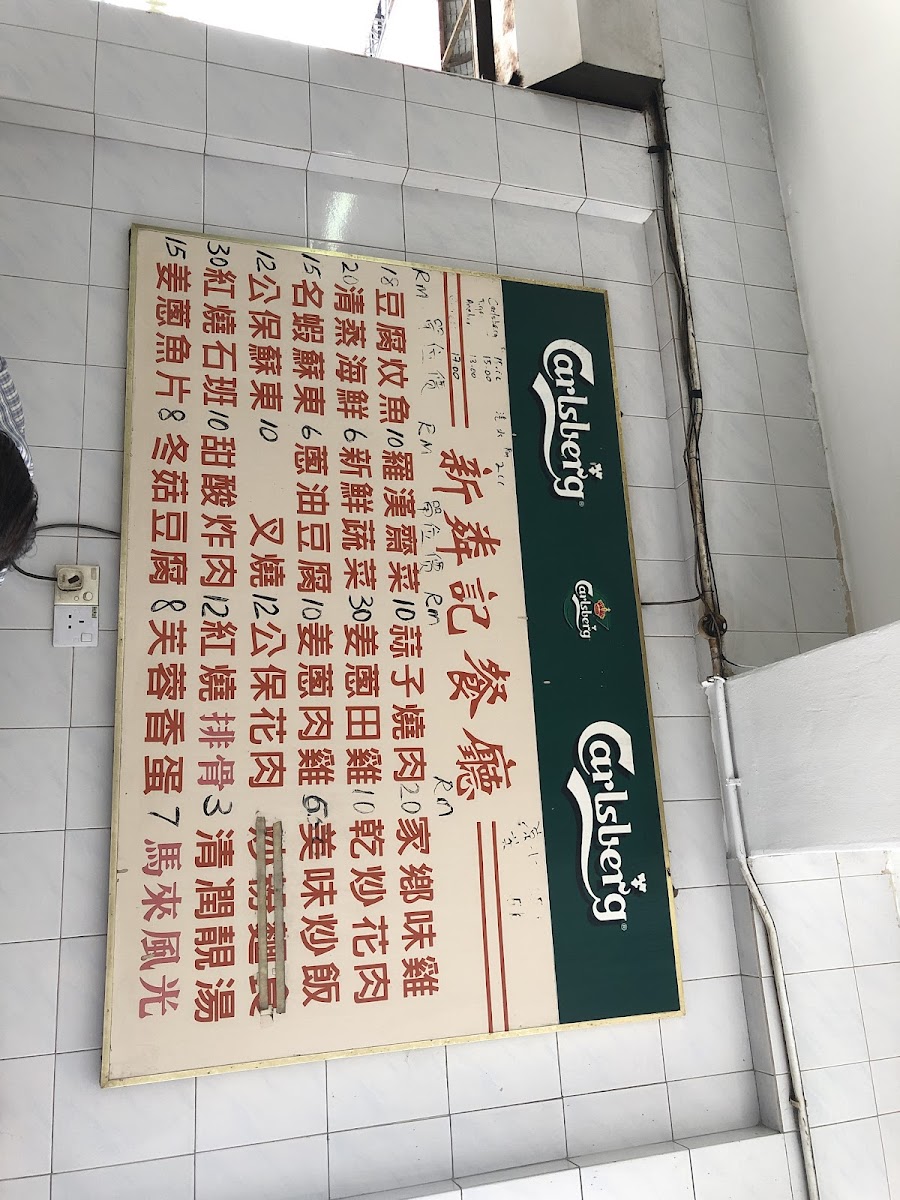 Carlsberg Carlsberg Carlsberg
Carlsberg
15.00
13.00
17.00
新記餐廳
RM 單位價 RM 單位價 Rm Rm
18 豆腐炆魚 10 羅漢齋菜 10 蒜子燒肉 20 家鄉味雞
20 清蒸海鮮 6 新鮮蔬菜 30 姜蔥田雞 10 乾炒花肉
15 名蝦蘇東 6 蔥油豆腐 10 姜蔥肉雞 6 美味炒飯
12 公保蘇東 10 叉燒 12 公保花肉
30 紅燒石班 10 甜酸炸肉 12 紅燒排骨 3 清潤靚湯
15 姜蔥魚片 8 冬菇豆腐 8 芙蓉香蛋 7 馬來風光